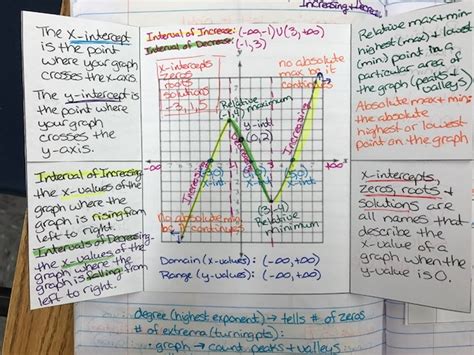 Increasing + Decrea
The x-intercept
is the point
where your graph
crosses the x-axis.
The y-intercept is
the point where
your graph
crosses the
y-axis.
Interval of Increasing:
the x-values of the
graph where the
graph is rising from
left to right.
Intervals of Decreasing:
the x-values of the
graph where the
graph is falling from
left to right.
Interval of Increase: (-∞,-1)U(3,+∞)
Interval of Decrease:
(-1,3)
x-intercepts
zeros
roots
solutions
-3,1,5
no absolute
max bc it
continues
Relative
maximum
(-1,4)
y-int
(0,2)
Increasing
Increasing
x-int
x-int
(3,-4)
Relative
minimum
-∞
+∞
no absolute min
bc it continues
Domain (x-values): (-∞,+∞)
Range (y-values): (-∞,+∞)
Relative max + min
highest (max) + lowest
(min) point in a
particular area of
the graph (peaks +
valleys)
Absolute max + min
the absolute
highest or lowest
point on the graph
x-intercepts,
zeros, roots +
solutions are
all names that
describe the
x-value of a
graph when the
y-value is 0.
degree (highest exponent) → tells # of zeros
# of extrema (turning pts):
· graph → count peaks + valleys